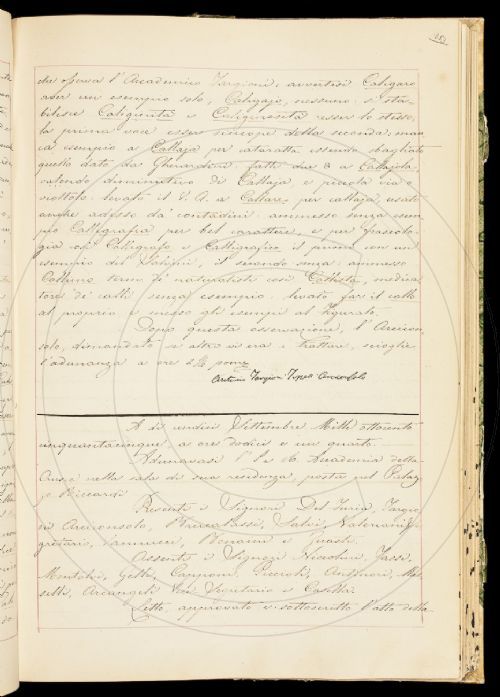 che osserva l'Accademico Targioni, avvertisi Caligaro
aver un esempio solo, Caligajo, nessuno: si sta-
bilisce Caliginità e Caliginosità esser lo stesso,
la prima voce esser sincope della seconda, man-
ca esempio a Callaja per cateratta essendo sbagliato
quello dato da Gherardini, fatti due § a Callajola
notendo diminutivo di Callaja e piccola via o
viottolo: levato il V. A. a Callare per callaja, usato
anche adesso da' contadini: ammesso senza esem-
pio Calligrafia per bel carattere, e per fraseolo-
gia così Calligrafo e Calligrafico il primo con un
esempio del Salvini, il secondo senza: ammesso
termine di naturalisti così Callista, medica-
tore de' calli senza esempio: levato far il callo
al proprio e messo gli esempi al figurato.
Dopo questa osservazione, l'Arcicon-
solo, dimandato se altro vi era a trattare, scioglie
l'adunanza a ore 2 ½ pom.
Targioni Tozzetti Arciconsolo
A dì undici Settembre Mille ottocento
cinquantacinque a ore dodici e un quarto.
Adunavasi l'I. e R. Accademia della
Crusca nella sala di sua residenza, posta nel Palaz-
zo Riccardi.
Presenti i Signori Del Furia, Targio-
ni Arciconsolo, Brucalassi, Salvi, Valeriani Se-
gretario, Vannucci, Bonaini e Guasti.
Assenti i Signori Niccolini, Tassi,
Montalvi, Gelli, Capponi, Puccioti, Antinori, Ma-
selli, Arcangeli Vice-Segretario e Casella.
Letto, approvato e sottoscritto l'atto della